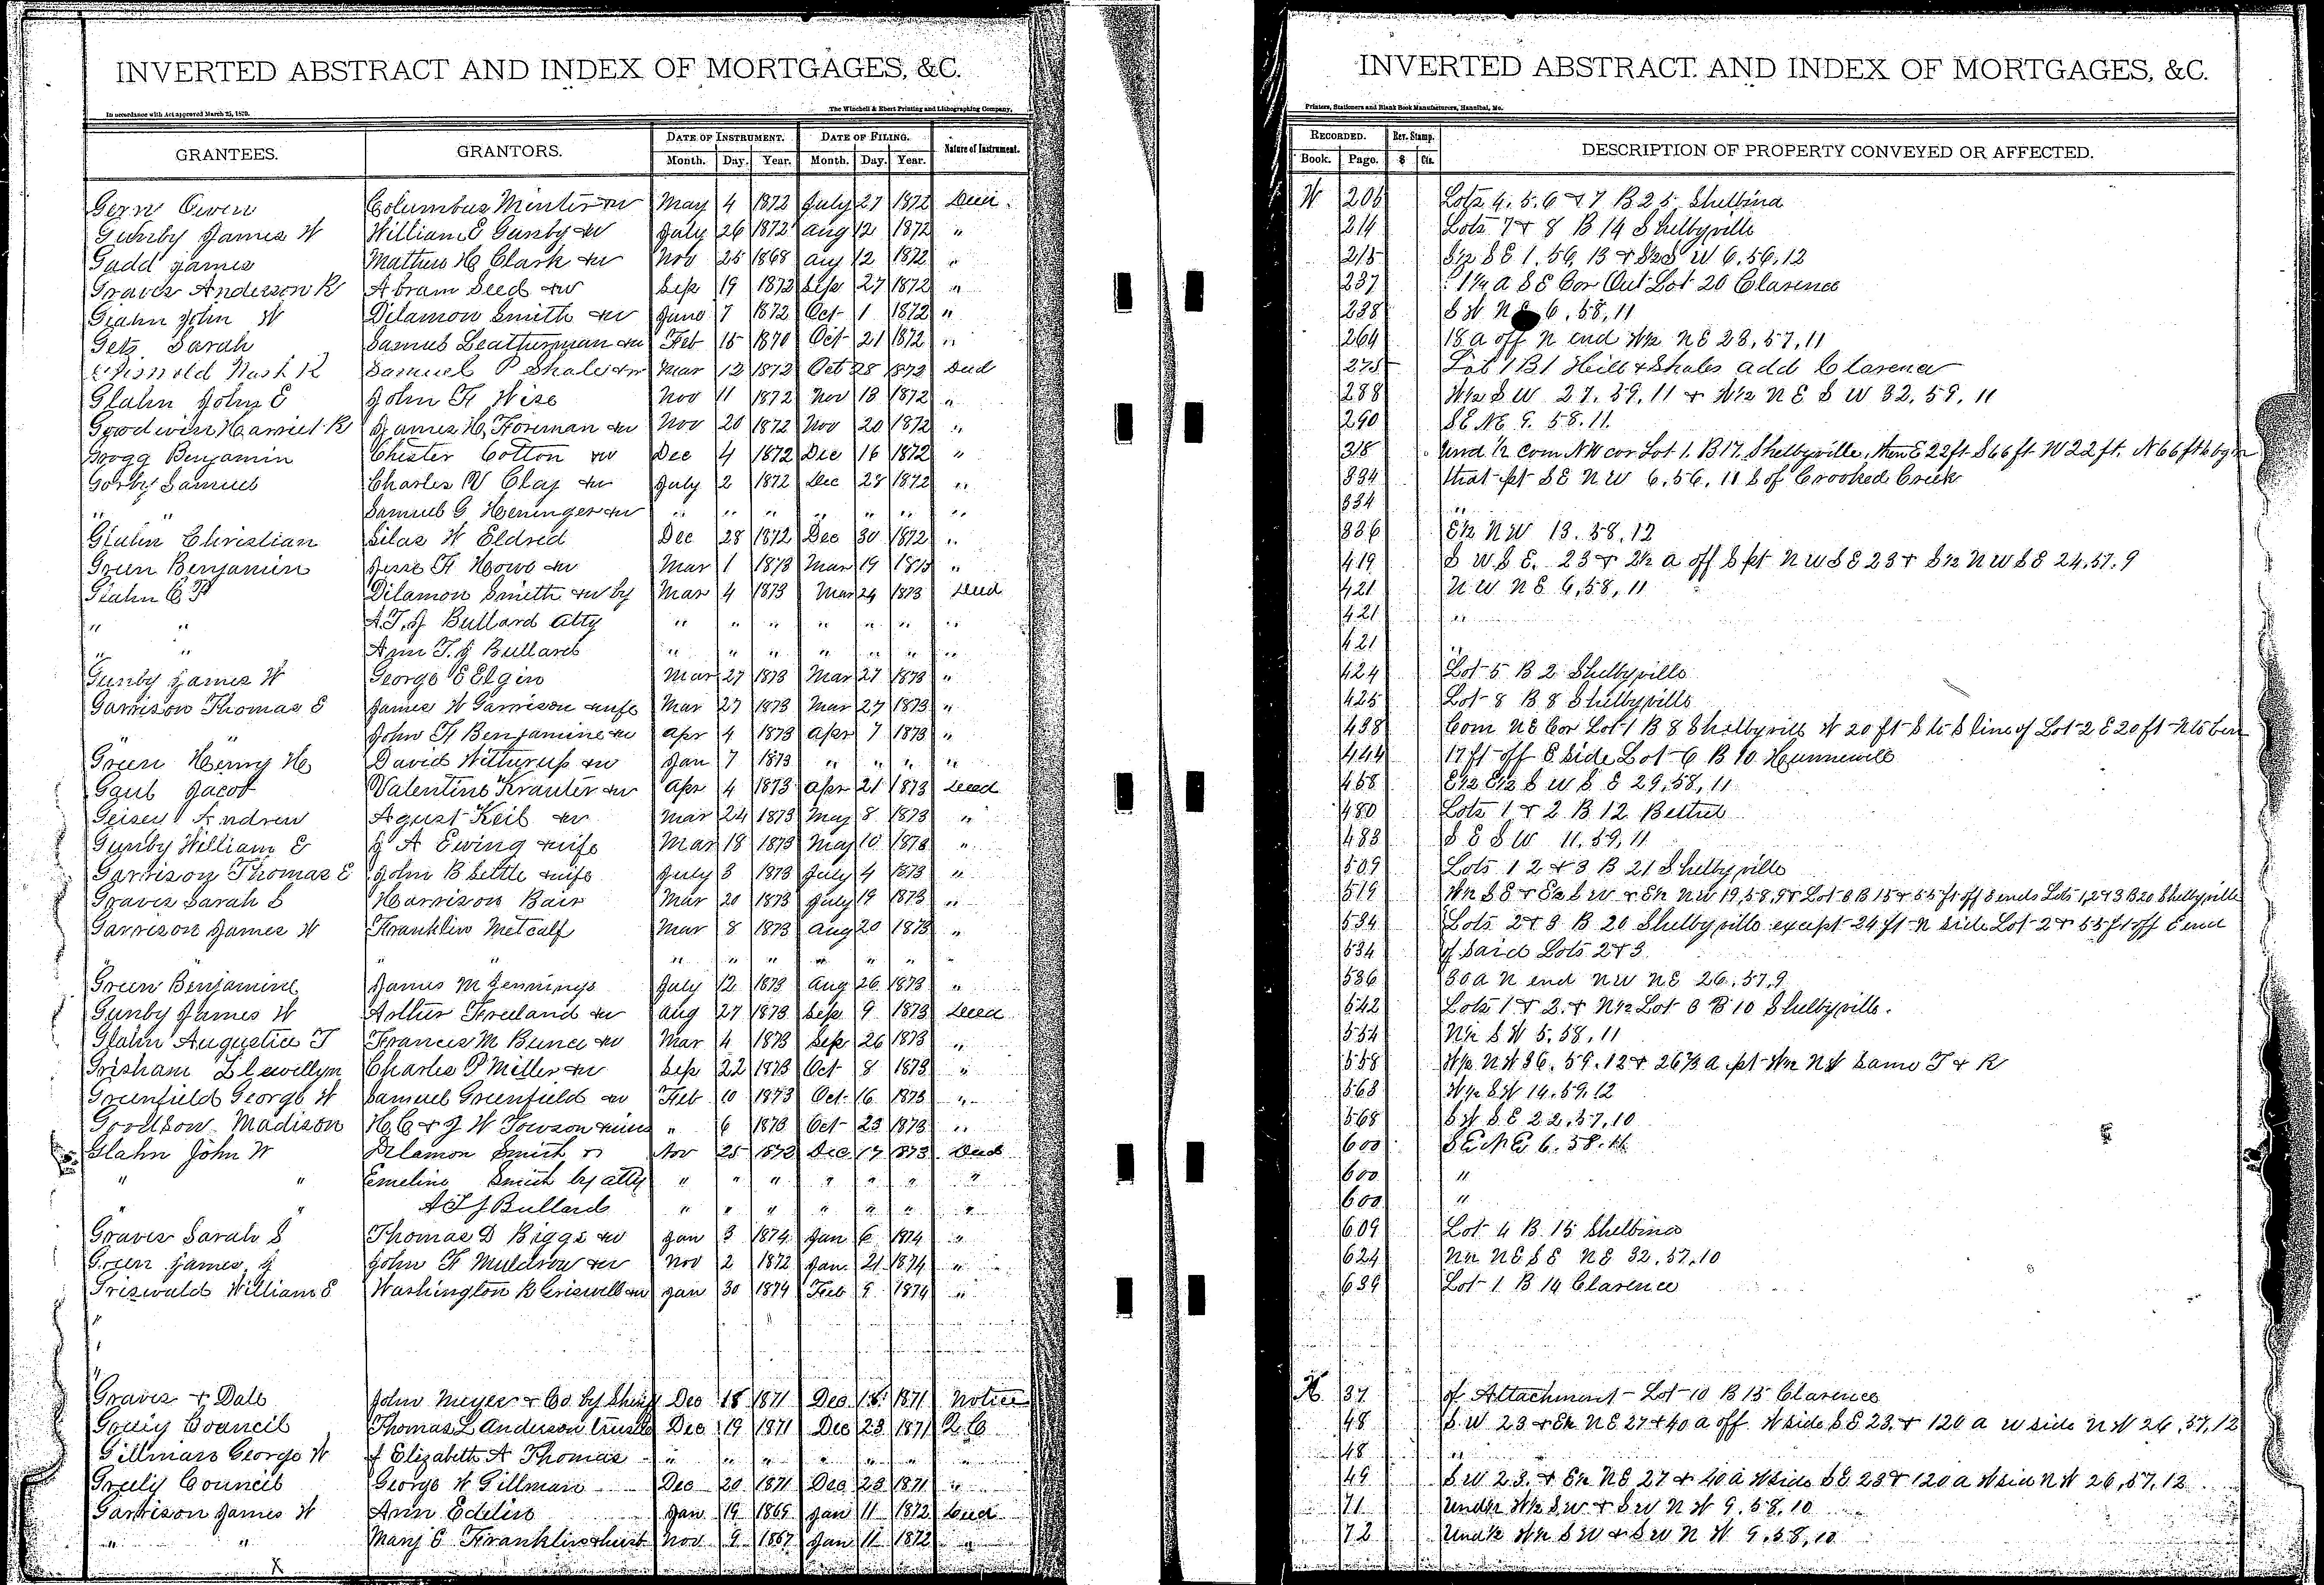 INVERTED ABSTRACT AND INDEX OF MORTGAGES, &C.
In accordance with Act approved March 25, 1870.
The Winchell & Ebert Printing and Lithographing Company,
GRANTEES. GRANTORS. DATE OF INSTRUMENT. DATE OF FILING. Nature of Instrument.
Month. Day. Year. Month. Day. Year.
Owen Columbus Minter &w May 4 1872 July 27 1872
Gunby James W William E Gunby &w July 26 1872 Aug 12 1872 "
Gadd James Mathew H Clark &w Nov 25 1868 Aug 12 1872 "
Graves Anderson R Abram Seed &w Sep 19 1872 Sep 27 1872 "
Glahn John W Dilamon Smith &w June 7 1872 Oct 1 1872 "
Getz Sarah Samuel Leatherman &w Feb 15 1870 Oct 21 1872 "
Samuel P Shale &w Mar 12 1872 Oct 28 1872 Deed
Glahn John E John F Wise Nov 11 1872 Nov 18 1872 "
Goodwin Harriet R James H. Foreman &w Nov 20 1872 Nov 20 1872 "
Gragg Benjamin Chester Cotton &w Dec 4 1872 Dec 16 1872 "
Gorby Samuel Charles W Clay &w July 2 1872 Dec 28 1872 "
" " Samuel G Heninger &w " " " " " " "
Glahn Christian Silas W Eldred Dec 28 1872 Dec 30 1872 "
Green Benjamin Jesse F Howe &w Mar 1 1873 Mar 19 1873 "
Glahn C P Dilamon Smith &w by Mar 4 1873 Mar 24 1873 Deed
" " A.T.J Bullard Atty " " " " " " "
" " Ann T. J Bullard " " " " " " "
Gunby James W George E Elgin Mar 27 1873 Mar 27 1873 "
Garrison Thomas E James W Garrison &wife Mar 27 1873 Mar 27 1873 "
" " John F Benjamine &w Apr 4 1873 Apr 7 1873 "
Green Henry H David Witturup &w Jan 7 1873 " " " "
Gaub Jacob Valentine Krauter &w Apr 4 1873 Apr 21 1873 Deed
Geisey Andrew Agust Keil &w Mar 24 1873 May 8 1873 "
Gunby William E J A Ewing &wife Mar 18 1873 May 10 1873 "
Garrison Thomas E John B Settle &wife July 3 1873 July 4 1873 "
Graves Sarah S Harrison Bair Mar 20 1873 July 19 1873 "
Garrison James W Franklin Metcalf Mar 8 1873 Aug 20 1873 "
" " " " " " " " "
Green Benjamine James M Jennings July 12 1873 Aug 26 1873 "
Gunby James W Arthur Freeland &w Aug 27 1873 Sep 9 1873 Deed
Glahn Augustice T Francis M Bunce &w Mar 4 1873 Sep 26 1873 "
Grisham Llewellyn Charles P Miller &w Sep 22 1873 Oct 8 1873 "
Greenfield George W Samuel Greenfield &w Feb 10 1873 Oct 16 1873 "
Goodson Madison H C & J W Towson " 6 1873 Oct 23 1873 "
Glahn John W Dilamon Smith Nov 25 1872 Dec 17 1873 Deed
" " Emeline Smith by atty " " " " " " "
" " A T J Bullard " " " " " " "
Graves Sarah S Thomas D Biggs &w Jan 3 1874 Jan 6 1874 "
Green James J John F Muldrow &w Nov 2 1872 Jan 21 1874 "
Griswald William E Washington B Griswell &w Jan 30 1874 Feb 9 1874 "
"
"
"
Graves & Dale John Meyer & Co by Sheriff Dec 18 1871 Dec 18 1871 Notice
Council Thomas L Anderson trustee Dec 19 1871 Dec 23 1871 Q C
Gillman George W & Elizabeth A Thomas " " " " " " "
Greely Council George W Gillman Dec 20 1871 Dec 23 1871 "
Garrison James W Ann Edelin Jan 19 1865 Jan 11 1872 Deed
" " Mary E Franklin & husb Nov 9 1867 Jan 11 1872 "
X
INVERTED ABSTRACT AND INDEX OF MORTGAGES, &C.
Printers, Stationers and Blank Book Manufacturers, Hannibal, Mo.
RECORDED. Rev. Stamp. DESCRIPTION OF PROPERTY CONVEYED OR AFFECTED.
Book. Page. $ Cts.
W 205 Lots 4. 5. 6 & 7 B 25 Shelbina
214 Lots 7 & 8 B 14 Shelbyville
215 S½ SE 1. 56, 13 & S½ S W 6. 56. 12
237 1¼ a S E Cor Out Lot 20 Clarence
238 S W N E 6. 58, 11
264 18 a off N end W½ NE 28, 57, 11
275 Lot 1 B 1 Hill & Shales add Clarence
288 W½ S W 27. 59. 11 & W½ N E S W 32. 59. 11
290 SE NE 9. 58. 11.
318 Und ½ com NW cor Lot 1. B 17 Shelbyville, then E 22 ft S 66 ft W 22 ft. N 66 ft to
334 that pt S E N W 6. 56. 11 S of Crooked Creek
334 "
336 E½ N W 13. 58. 12
419 S W S E. 23 & 2½ a off S pt N W S E 23 & S½ N W S E 24. 57. 9
421 N W N E 6, 58, 11
421 "
421 "
424 Lot 5 B 2 Shelbyville
425 Lot 8 B 8 Shelbyville
438 Com N E Cor Lot 1 B 8 Shelbyville W 20 ft S to S line of Lot 2 E 20 ft N to
444 17 ft off E side Lot 6 B 10 Hunnewell
458 E½ E½ S W S E 29, 58, 11
480 Lots 1 & 2 B 12 Bethel
483 S E S W 11. 59, 11
509 Lots 1 2 & 3 B 21 Shelbyville
519 W½ S E & E½ S W & E½ N W 19, 58, 9 & Lot 8 B 15 & 55 ft off E ends Lots 1, 2 & 3 B 20 Shelbyville
534 Lots 2 & 3 B 20 Shelbyville except 24 ft N side Lot 2 & 55 ft off E end
534 of said Lots 2 & 3
536 30 a N end N W N E 26. 57, 9
542 Lots 1 & 2. & N½ Lot 3 B 10 Shelbyville.
554 N½ S W 5. 58, 11
558 W½ N W 36. 59. 12 & 26⅔ a pt W½ N W same T & R
563 W½ S W 14. 59, 12
568 S W S E 22, 57, 10
600 S E N E 6. 58. 11
600 "
600 "
609 Lot 4 B. 15 Shelbina
624 N½ N E S E N E 32, 57, 10
639 Lot 1 B 14 Clarence
X 37 of Attachment – Lot 10 B 15 Clarence
48 S W 23 & E½ N E 27 & 40 a off W side S E 23. & 120 a W side N W 26, 57, 12
48 "
49 S W 23. & E½ N E 27 & 40 a W side S E 23 & 120 a W side N W 26, 57, 12
71 W½ S W & S W N W 9. 58, 10
72 W½ S W & S W N W 9. 58, 10